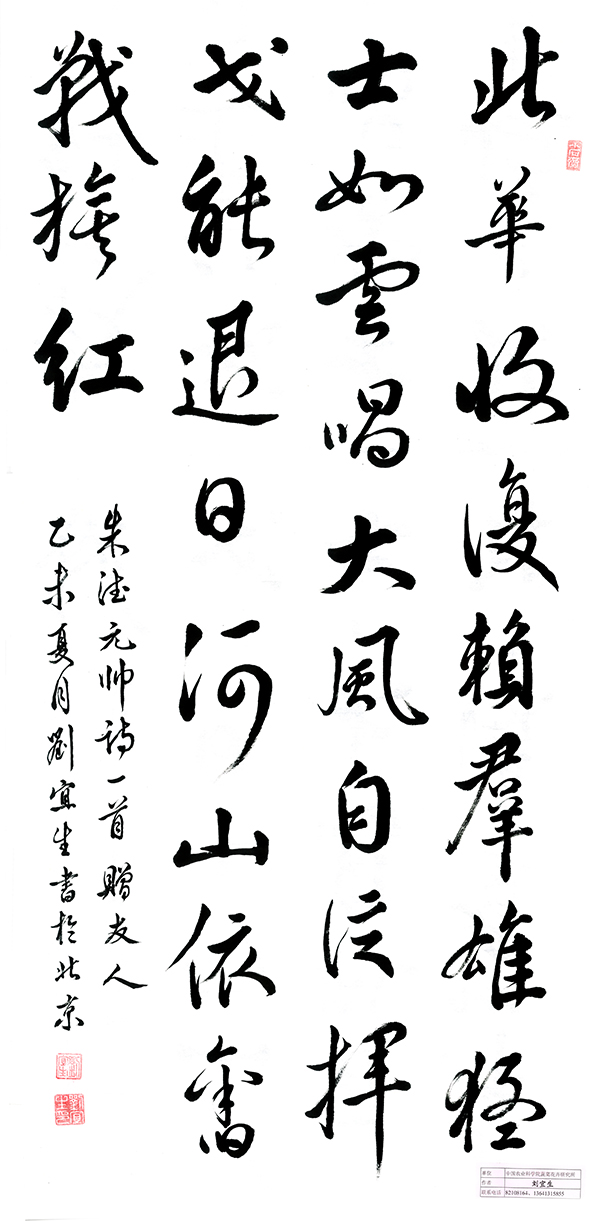 北華收復賴羣雄猛
士如雲唱大風自信揮
戈能退日河山依舊
戰旗紅
朱德元帅詩一首 贈友人
乙未夏月劉宜生書於北京
单位 中国农业科学院蔬菜花卉研究所
作者 刘宜生
联系电话 82108164、13641315855